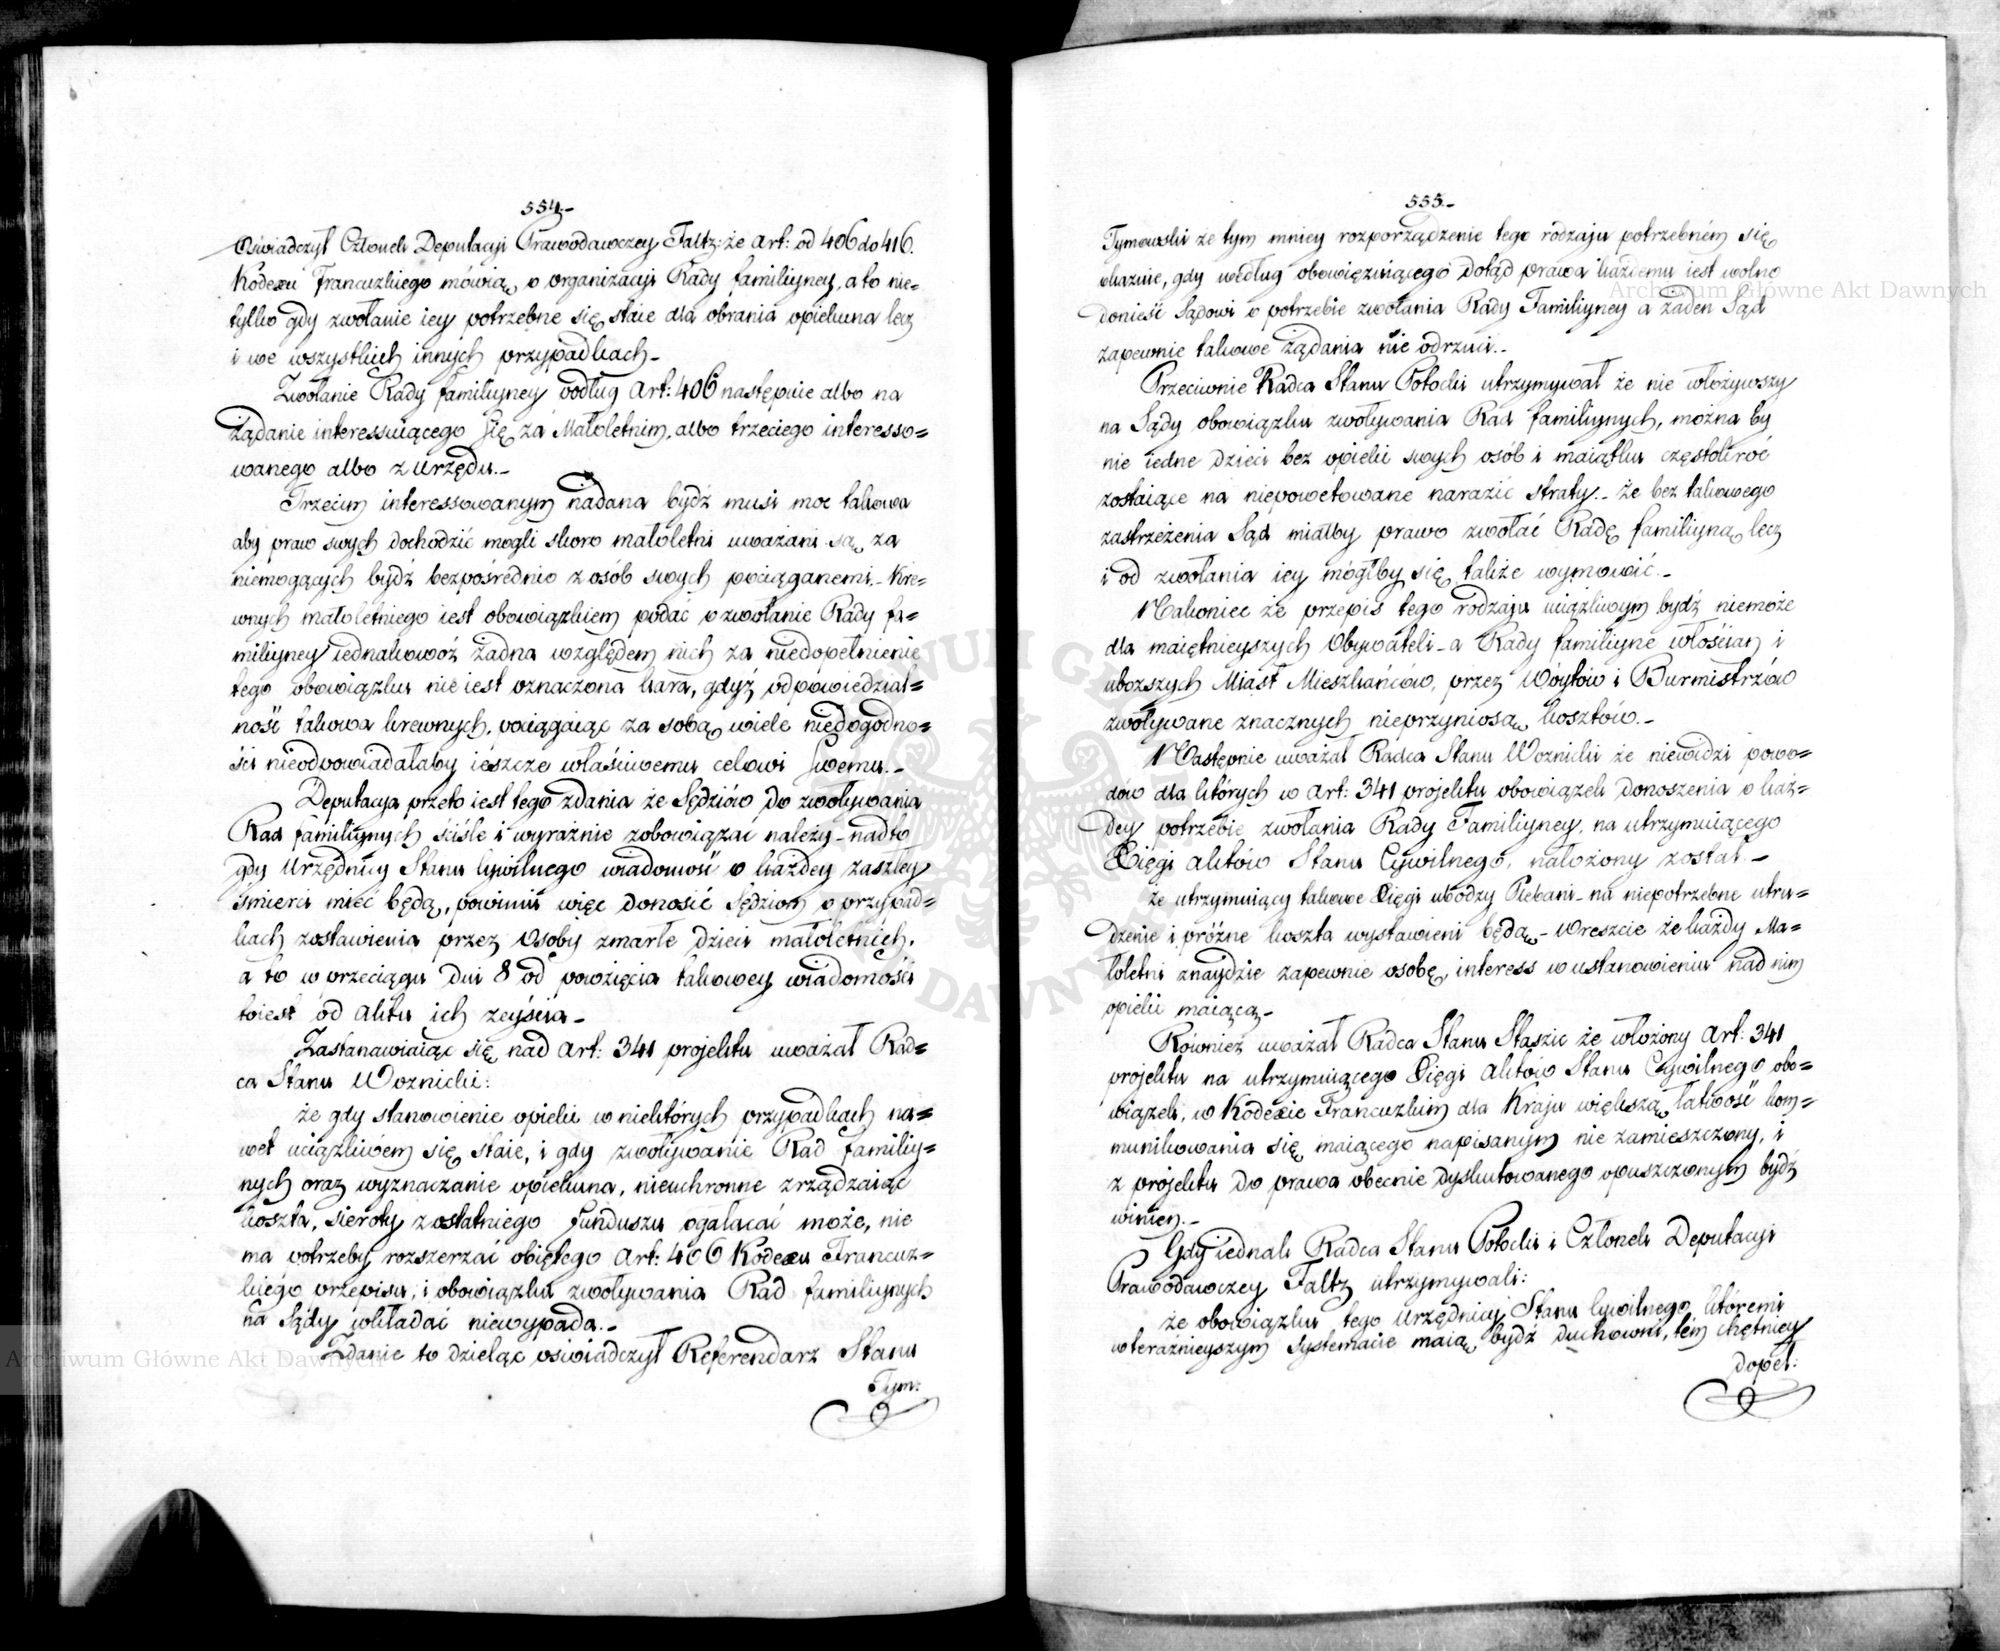 554.-
Oświadczył Członek Deputacyi Prawodawczey Faltz: że art: od 406 do 416.
Kodexu Francuzkiego mówią o organizacyi Rady familiyney, a to nie=
tylko gdy zwołanie iey potrzebne się staie dla obrania opiekuna lecz
i we wszystkich innych przypadkach.-
Zwołanie Rady familiyney podług art: 406 następuie albo na
żądanie interessuiącego się za Małoletnim, albo trzeciego interesso=
wanego albo z urzędu.-
Trzecim interessowanym nadana bydź musi moc takowa
aby praw swych dochodzić mogli skoro małoletni uważani są za
niemogących bydź bezpośrednio z osób swych pociąganemi.- Kre=
wnych małoletniego iest obowiązkiem podać o zwołanie Rady fa=
miliyney iednakowoż żadna względem nich za niedopełnienie
tego obowiązku nie iest oznaczona kara, gdyż odpowiedzial=
ność takowa krewnych, pociągaiąc za sobą wiele niedogodno=
ści nieodpowiadałaby ieszcze właściwemu celowi swemu.-
Deputacya przeto iest tego zdania że Sędziów do zwoływania
Rad familiynych ściśle i wyraźnie zobowiązać należy - nadto
gdy Urzędnicy Stanu cywilnego wiadomość o każdey zaszłey
śmierci mieć będą, powinni więc donosić Sędziom o przypad=
kach zostawienia przez Osoby zmarłe dzieci małoletnich,
a to w przeciągu dni 8 od powzięcia takowey wiadomości
toiest od aktu ich zeyścia.-
Zastanawiaiąc się nad art: 341 projektu uważał Rad=
ca Stanu Woznicki:
że gdy stanowienie opieki w niektórych przypadkach na=
wet uciążliwém się staie, i gdy zwoływanie Rad familiy=
nych oraz wyznaczanie opiekuna, nieuchronne zrządzaiąc
koszta, sieroty z ostatniego funduszu ogałacać może, nie
ma potrzeby rozszerzać obiętego art: 406 Kodexu Francuz=
kiego przepisu, i obowiązku zwoływania Rad familiynych
na Sądy wkładać niewypada.-
Zdanie to dzieląc oświadczył Referendarz Stanu
Tym:
555.-
Tymowski że tym mniey rozporządzenie tego rodzaju potrzebném się
okazuie, gdy według obowięzuiącego dotąd prawa każdemu iest wolno
donieść Sądowi o potrzebie zwołania Rady Familiyney a żaden Sąd
zapewnie takowe żądania nie odrzuci.-
Przeciwnie Radca Stanu Potocki utrzymywał że nie włożywszy
na Sądy obowiązku zwoływania Rad familiynych, można by
nie iedne dzieci bez opieki swych osób i maiątku częstokroć
zostaiące na niepowetowane narazić straty.- że bez takowego
zastrzeżenia Sąd miałby prawo zwołać Radę familiyną lecz
i od zwołania iey mógłby się także wymówić.-
Nakoniec że przepis tego rodzaju uciążliwym bydź niemoże
dla maiętnieyszych Obywateli - a Rady familiyne włościan i
uboższych Miast Mieszkańców, przez Wóytów i Burmistrzów
zwoływane znacznych nieprzyniosą kosztów.-
Następnie uważał Radca Stanu Woznicki że niewidzi powo=
dów dla których w art: 341 projektu obowiązek donoszenia o każ=
dey potrzebie zwołania Rady Familiyney, na utrzymuiącego
Xięgi aktów Stanu Cywilnego, nałożony został.-
że utrzymuiący takowe Xięgi ubodzy Plebani - na niepotrzebne utru=
dzenie i próżne koszta wystawieni będą - wreszcie że każdy Ma=
łoletni znaydzie zapewnie osobę, interess w ustanowieniu nad nim
opieki maiącą.-
Również uważał Radca Stanu Staszic że włożony art: 341
projektu na utrzymuiącego Xięgi aktów Stanu Cywilnego obo=
wiązek, w Kodexie Francuzkim dla Kraju większą łatwość kom=
munikowania się maiącego napisanym nie zamieszczony, i
z projektu do prawa obecnie dyskutowanego opuszczonym bydź
winien.-
Gdy iednak Radca Stanu Potocki i Członek Deputacyi
Prawodawczey Faltz utrzymywali:
że obowiązku tego Urzędnicy Stanu cywilnego, któremi
w teraźnieyszym systemacie maią bydź duchowni, tém chętniey
dopeł: